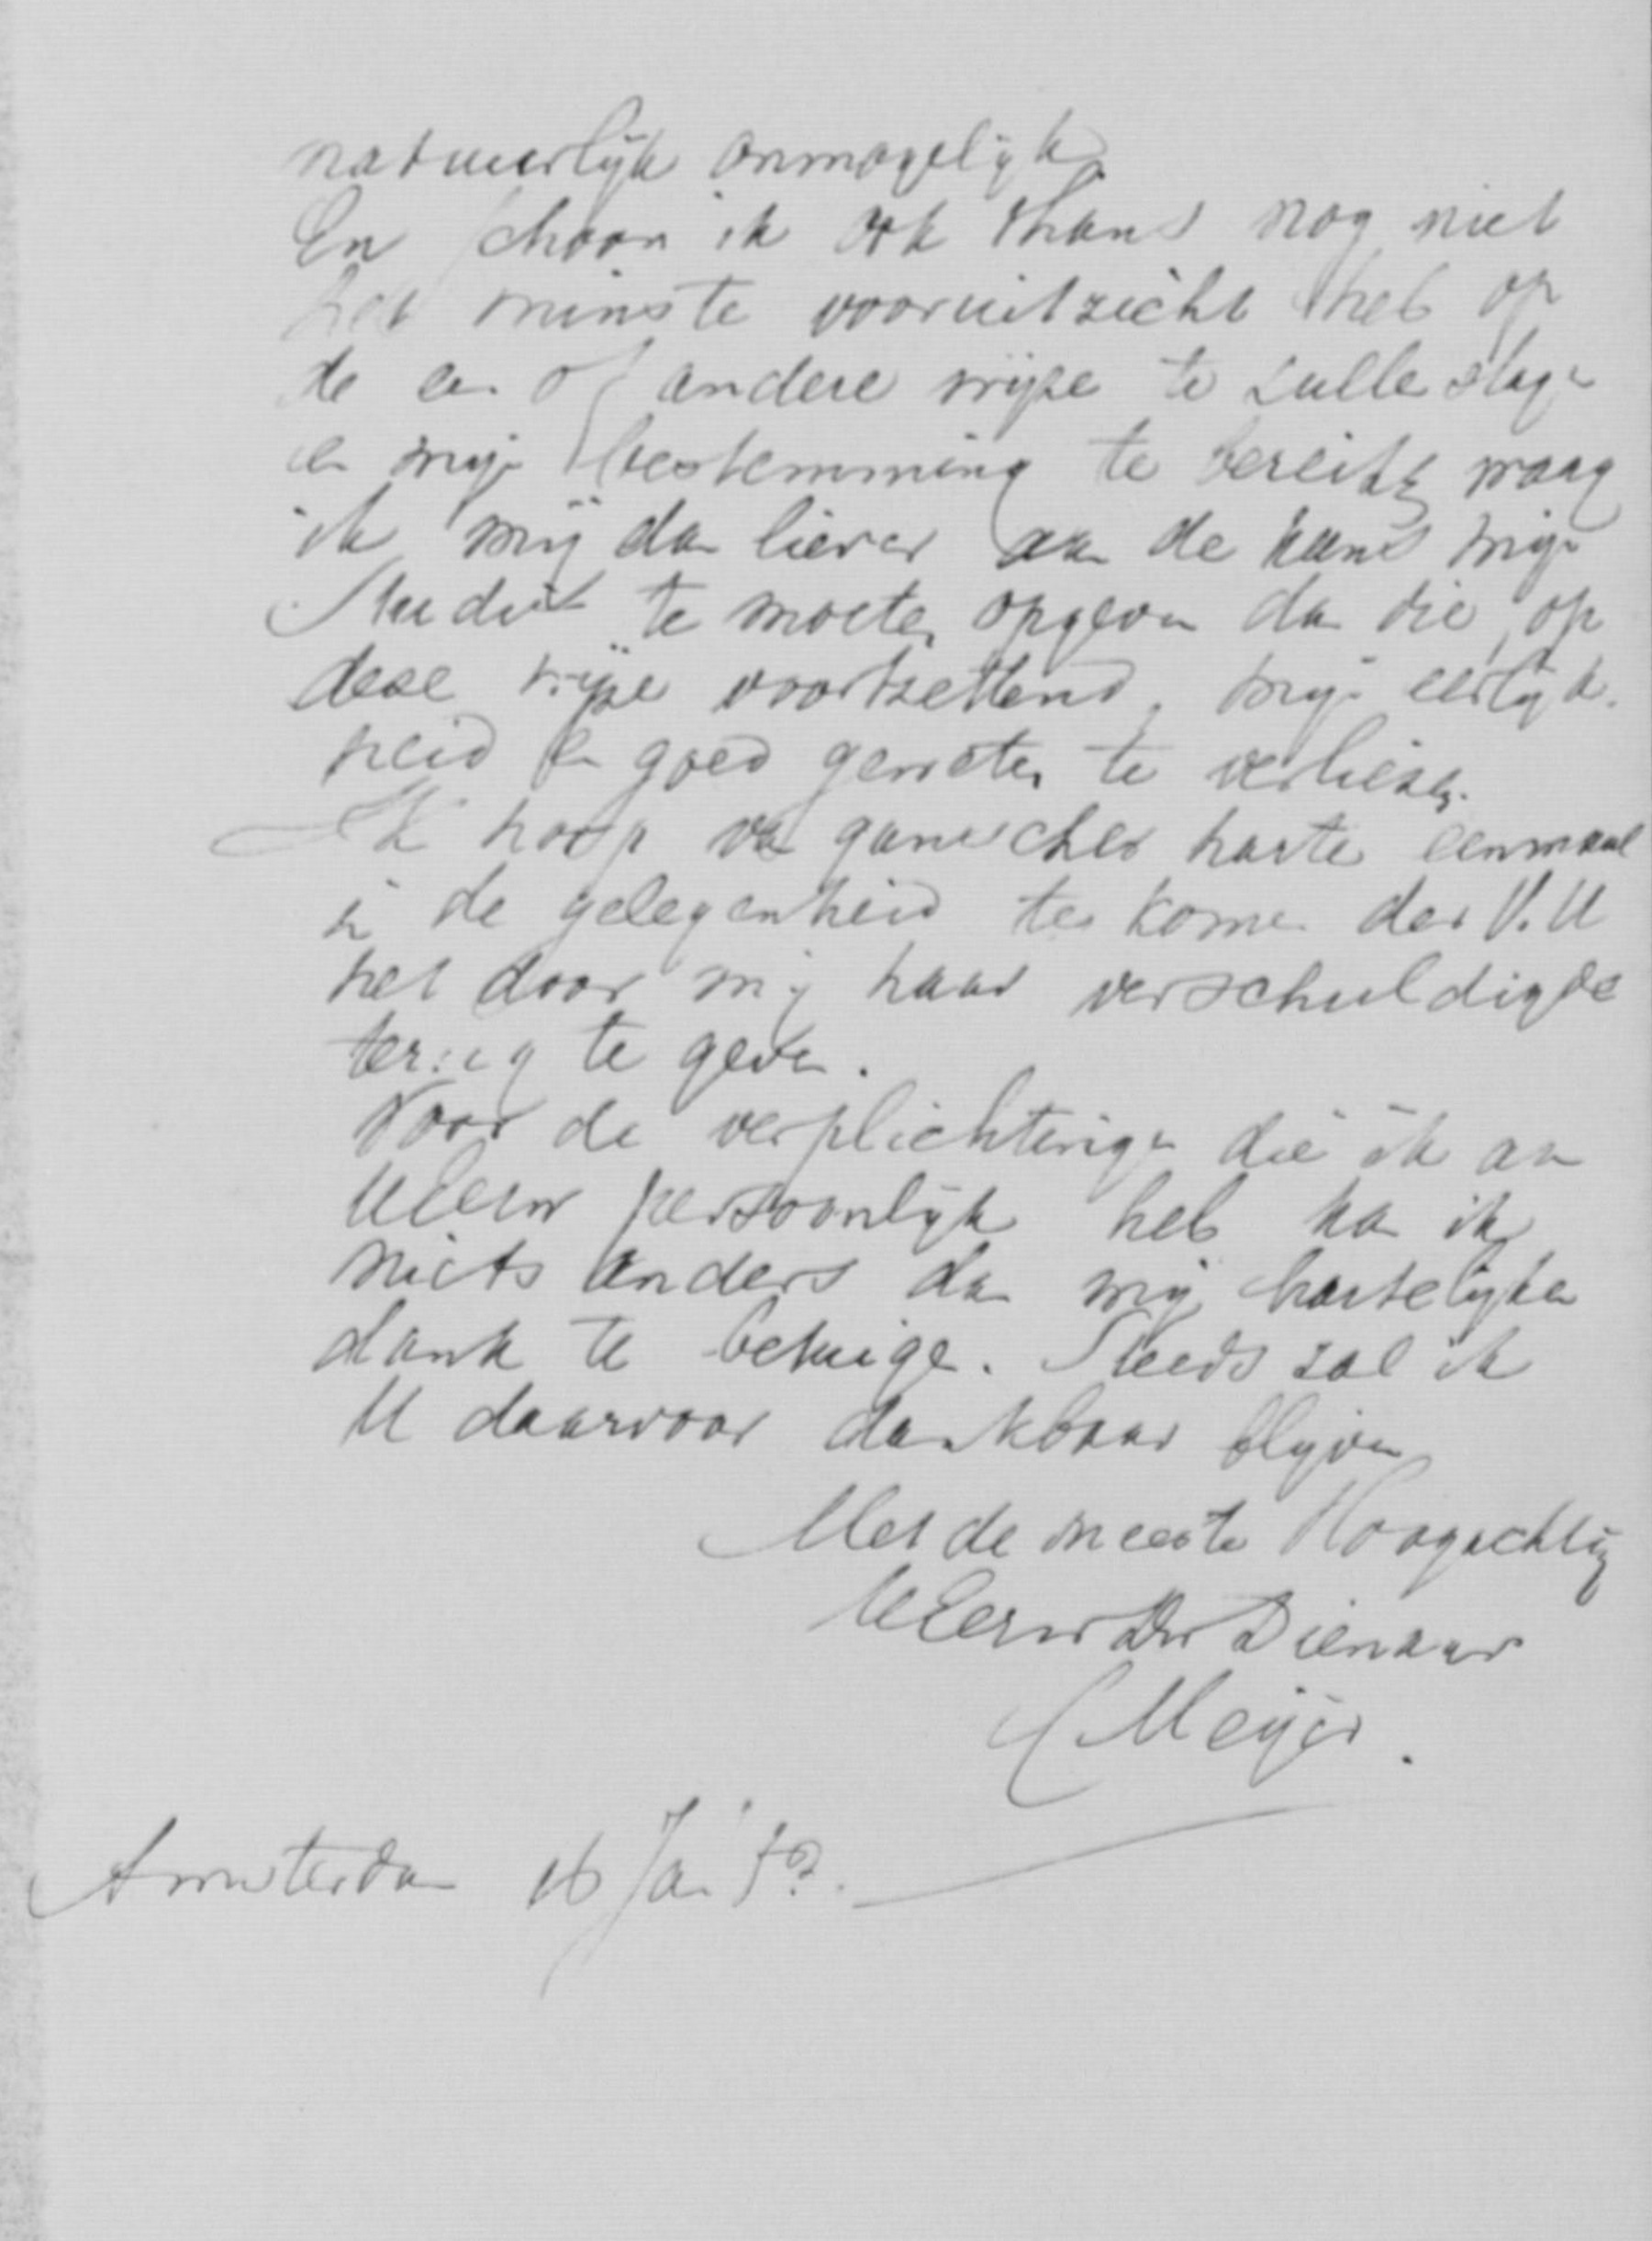 natuurlijk onmogelijk
En schoon ik ook thans nog niet
het minste vooruitzicht heb op
de een of andere wijze te zullen slagen
en mijn bestemming te bereiken waag
ik mij dan liever aan de kans mijn
Studie te moeten opgeven dan die, op
deze wijze voortzettend, mijn eerlijk-
heid en goed geweten te verliezen.
Ik hoop van ganscher harte eenmaal
in de gelegenheid te komen der V.U
het door mij haar verschuldigde
terug te geven.
Voor de verplichtingen die ik aan
UEerw persoonlijk heb kan ik
niets anders dan mijn hartelijken
dank te betuigen. Steeds zal ik
U daarvoor dankbaar blijven
Met de meeste Hoogachting
UEerw Dw Dienaar
C Meijer.
Amsterdam 16 Jan